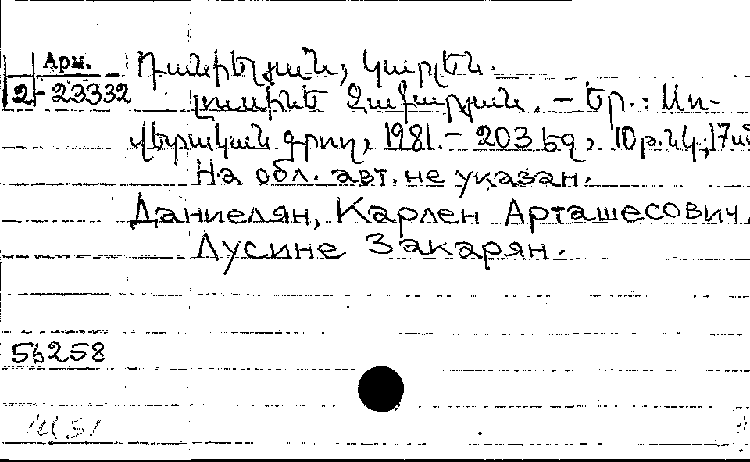 Арм.
2-23332
Դանիելյան, Կարլեն.
Լուսինե Զաքարյան. — Եր.: Սո-
վետական գրող, 1981. — 203 էջ, 10 թ. նկ., 17 սմ
На обл. авт. не указан.
Даниелян, Карлен Арташесович.
Лусине Закарян.
56258